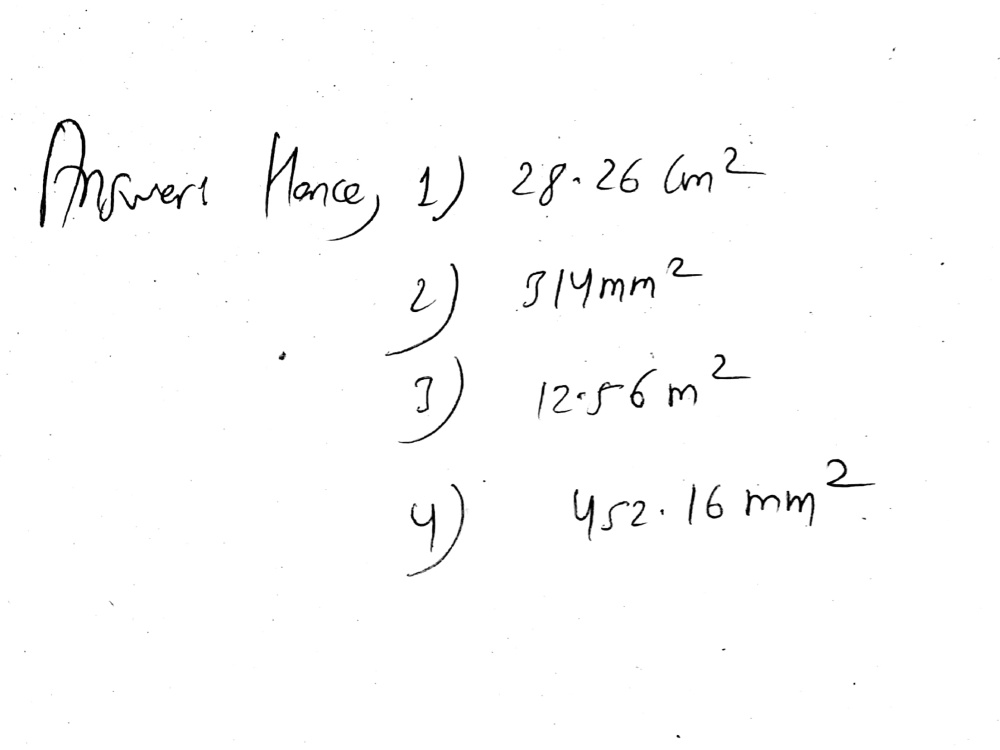 Answers Hence, 1) 28.26 Cm²
2) 314mm²
3) 12.56 m²
4) 452.16 mm²